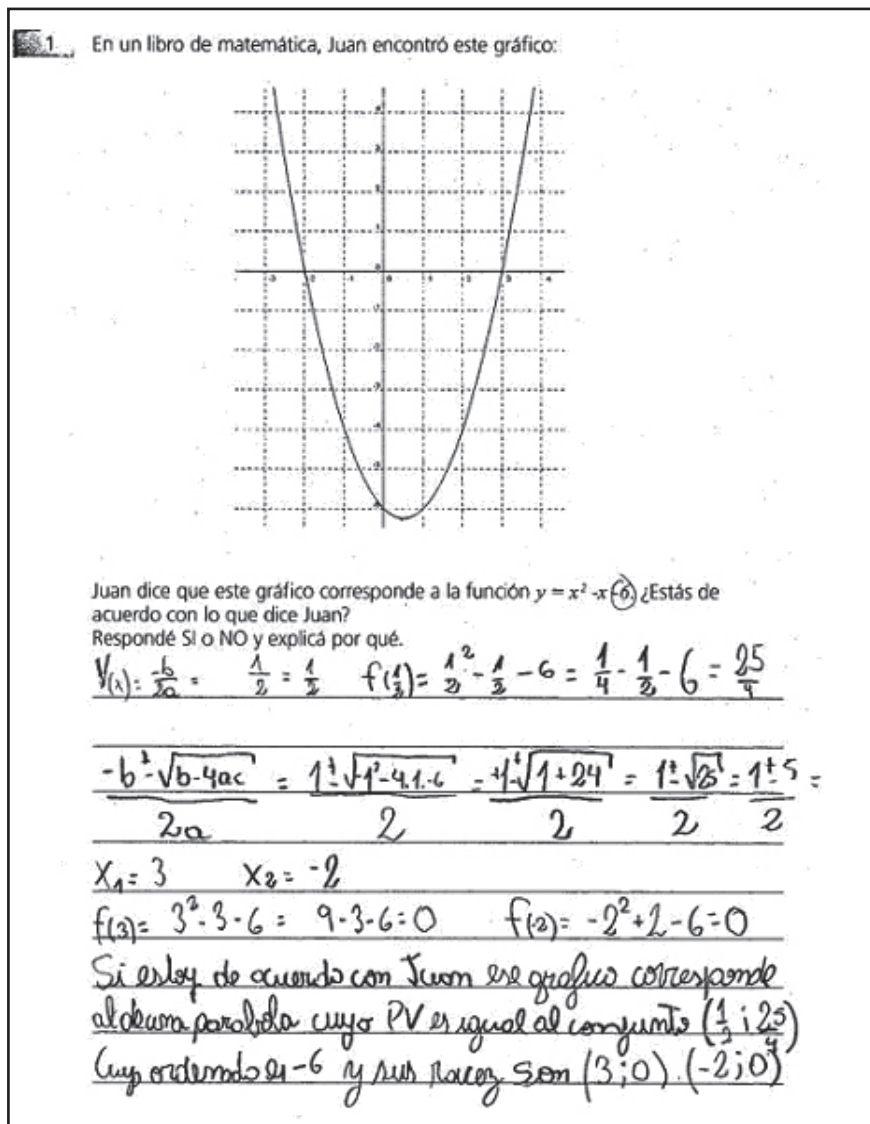 1 En un libro de matemática, Juan encontró este gráfico:
4
3
2
1
0
-3 -2 -1 0 1 2 3 4
-1
-2
-3
-4
-5
-6
Juan dice que este gráfico corresponde a la función y = x² -x -6. ¿Estás de
acuerdo con lo que dice Juan?
Respondé SI o NO y explicá por qué.
V(x) = -b/2a = 1/2 = 1/2 f(1/2) = 1/2² - 1/2 - 6 = 1/4 - 1/2 - 6 = 25/4
-b ± √b-4ac / 2a = 1 ± √-1²-4.1.-6 / 2 = +1 ± √1+24 / 2 = 1 ± √25 / 2 = 1 ± 5 / 2 =
X₁ = 3 X₂ = -2
f(3) = 3² - 3 - 6 = 9 - 3 - 6 = 0 f(-2) = -2² + 2 - 6 = 0
Si estoy de acuerdo con Juan ese grafico corresponde
al de una parabola cuyo PV es igual al conjunto (1/2 ; 25/4)
Cuyo ordenada es -6 y sus raices son (3;0) . (-2;0)